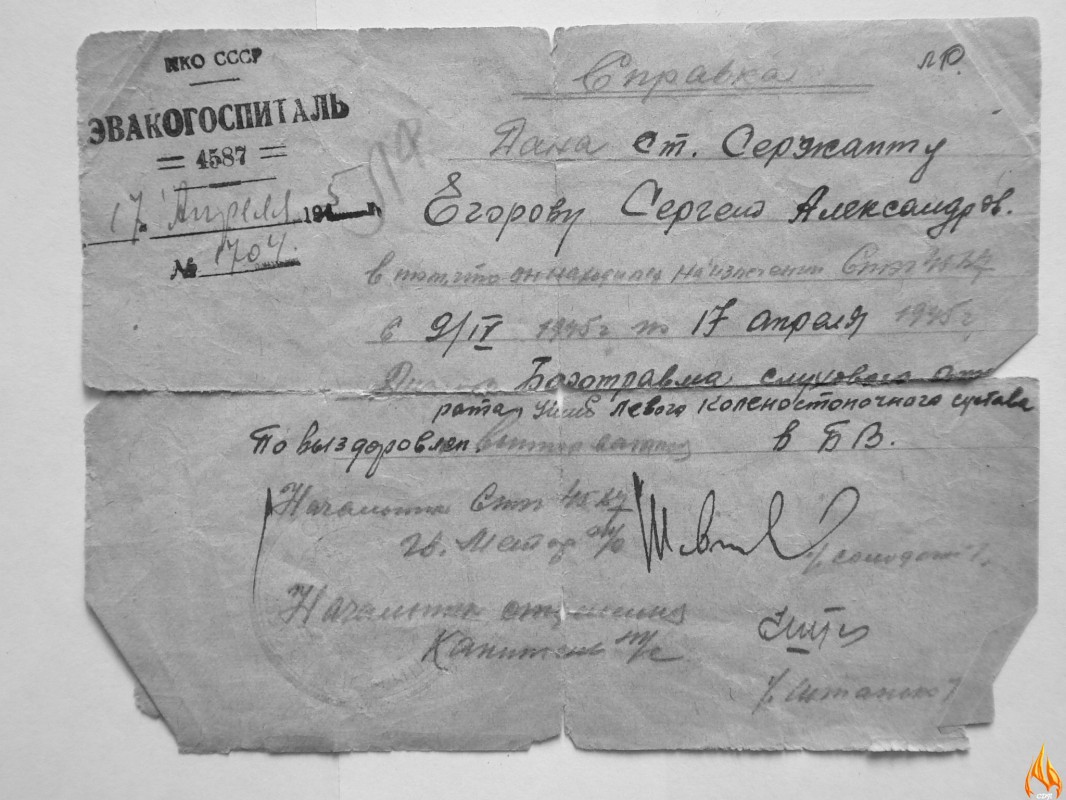 НКО СССР
ЭВАКОГОСПИТАЛЬ
= 4587 =
17. Апреля 1945 г.
№ 1704.
Справка
Дана ст. Сержанту
Егорову Сергею Александров.
в том, что он находился на излечении
с 9/IV 1945 г по 17 апреля 1945 г
Баротравма слухового апп
рата, ушиб левого коленостопочного сустава
По выздоровлен. в БВ.
Начальник
гв. Майор м/с
Начальник отделения
Капитан м/с